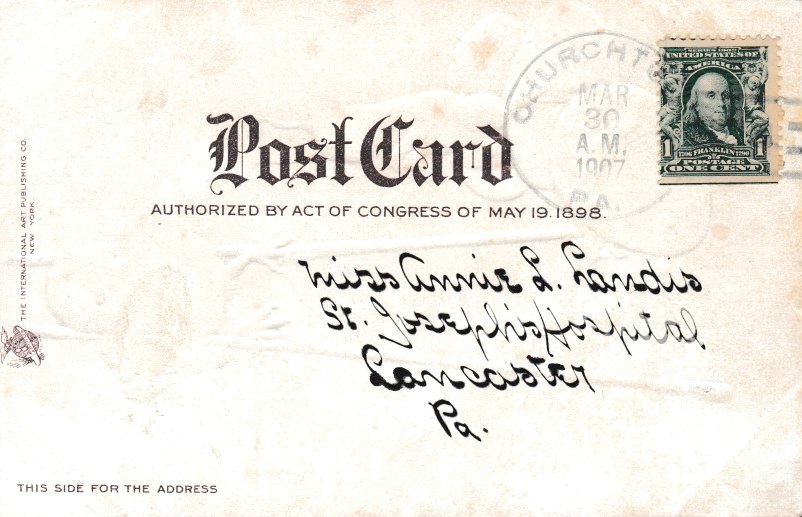 Post Card
AUTHORIZED BY ACT OF CONGRESS OF MAY 19. 1898.
CHURCHT
MAR
30
A.M.
1907
PA.
SERIES 1902
UNITED STATES OF
AMERICA
1 1706 FRANKLIN 1790 1
POSTAGE
ONE CENT
THE INTERNATIONAL ART PUBLISHING CO.
NEW YORK.
Miss Annie L. Landis
St. Joseph's Hospital
Lancaster
Pa.
THIS SIDE FOR THE ADDRESS